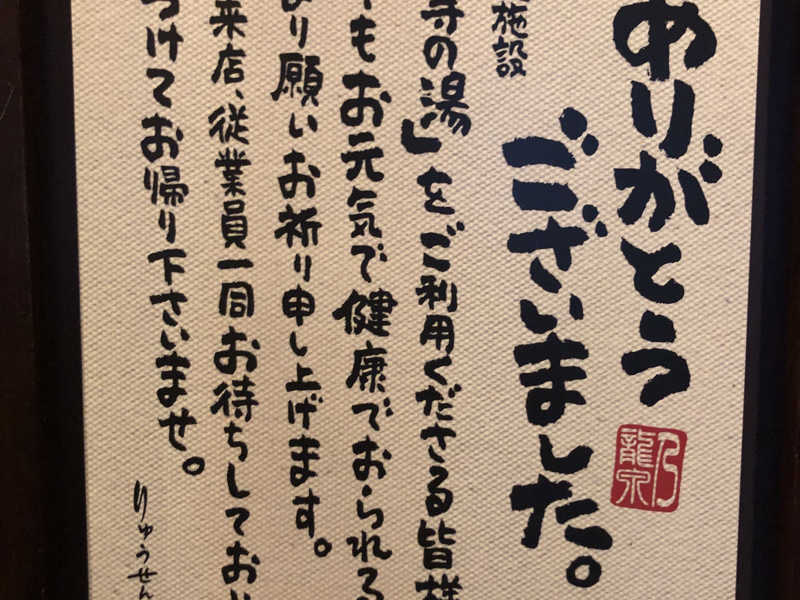 ありがとう
ございました。
施設
寺の湯」をご利用くださる皆様
もお元気で健康でおられる
り願いお祈り申し上げます。
来店、従業員一同お待ちしてお
つけてお帰り下さいませ。
りゅうせん
乃
龍泉